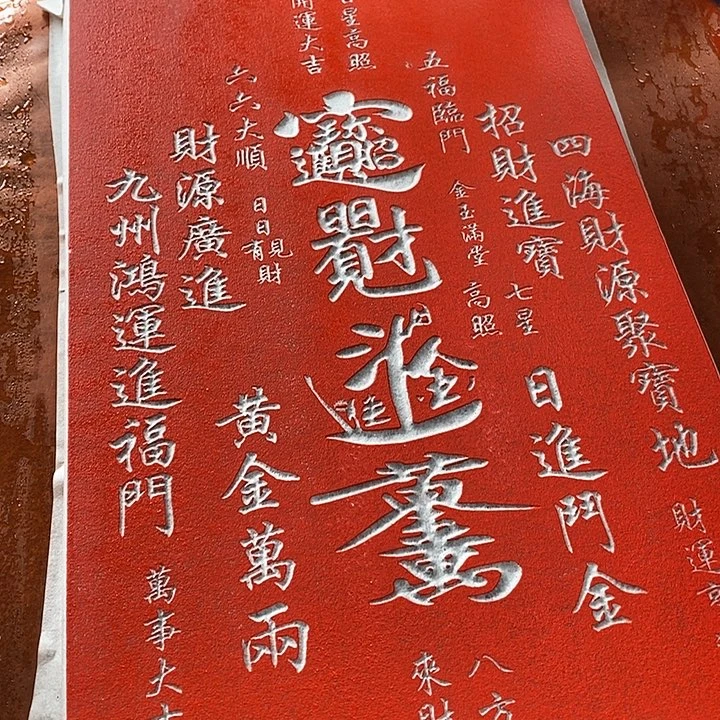 財運
四海財源聚寶地
招財進寶
七星
高照
日進鬥金
八方
來財
五福臨門
金玉滿堂
星高照
開運大吉
六六大順
日日
有見財
黃金萬兩
財源廣進
九州鴻運進福門
萬事大吉